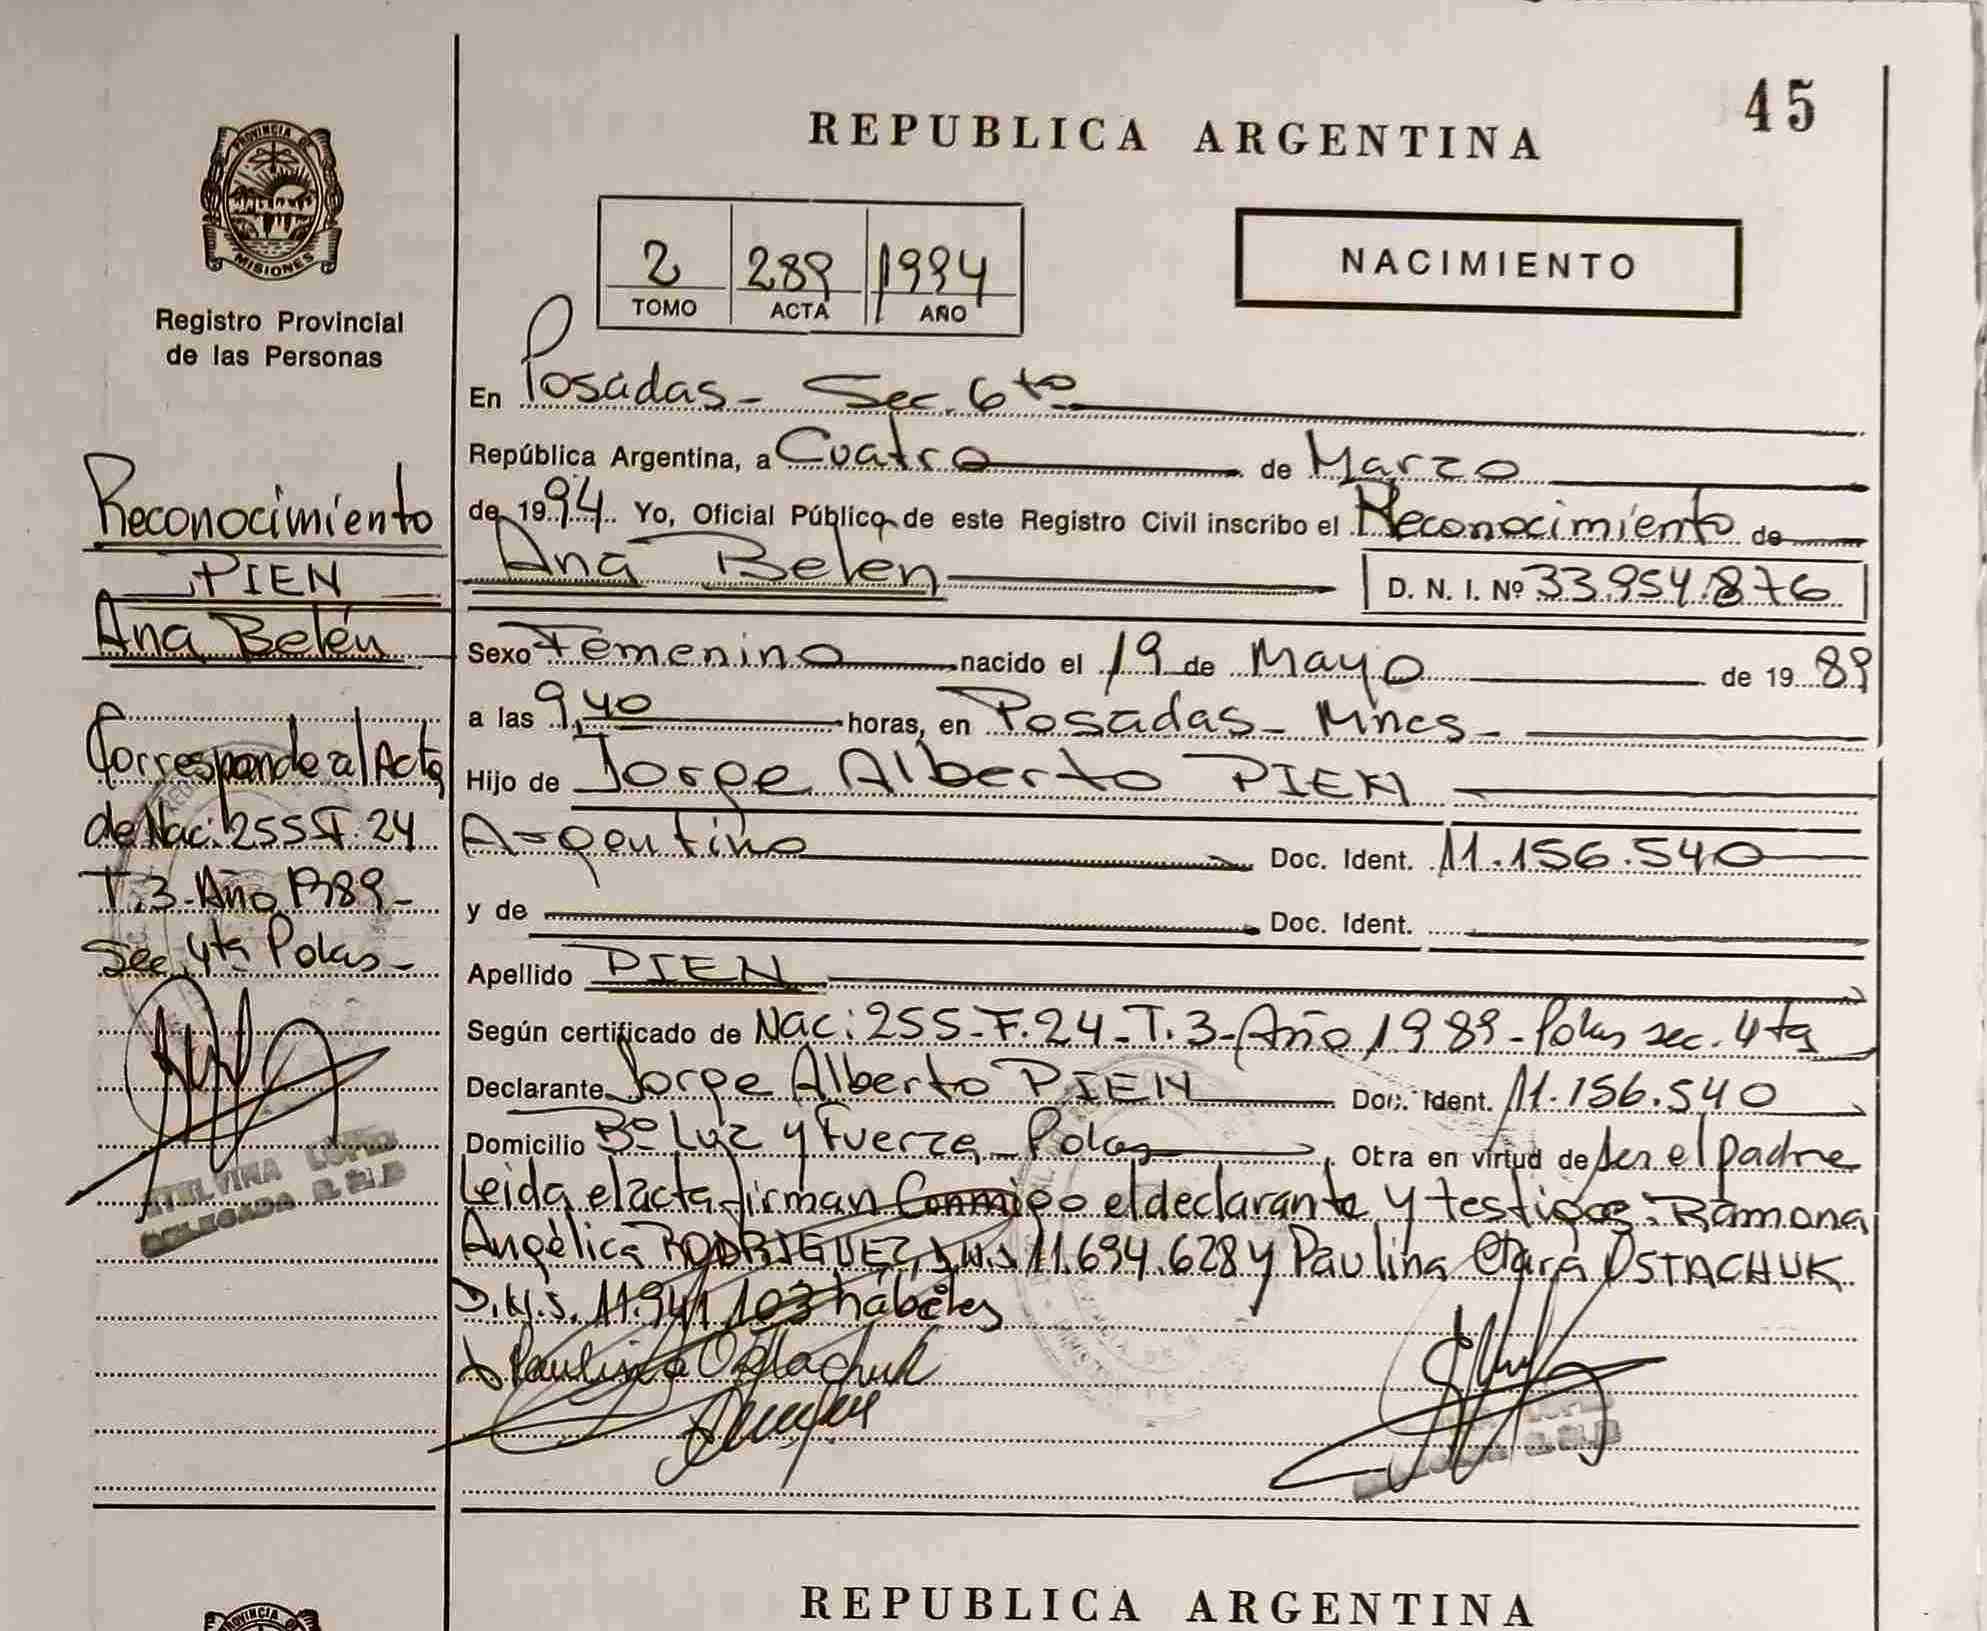 45
REPUBLICA ARGENTINA
PROVINCIA D
MISIONES
Registro Provincial
de las Personas
2 289 1994
TOMO ACTA AÑO
NACIMIENTO
Reconocimiento
PIEN
Ana Belén
Corresponde al Acta
de Nac: 255 F. 24
T. 3 - Año 1989 -
Sec 4ta Pdas -
LOPEZ
DELEGADA
En Posadas - Sec. 6to
República Argentina, a Cuatro de Marzo
de 1994. Yo, Oficial Público de este Registro Civil inscribo el Reconocimiento de
Ana Belen D. N. I. Nº 33.954.876
Sexo Femenino nacido el 19 de Mayo de 1989
a las 9,40 horas, en Posadas - Mnes -
Hijo de Jorge Alberto PIEN
Argentino Doc. Ident. 11.156.540
y de Doc. Ident.
Apellido PIEN
Según certificado de Nac: 255 - F. 24 - T. 3 - Año 1989 - Pdas sec. 4ta
Declarante Jorge Alberto PIEN Doc. Ident. 11.156.540
Domicilio Bº Luz y Fuerza - Pdas, Otra en virtud de ser el padre
Leida el acta firman Conmigo el declarante y testigos: Ramona
Angélica RODRIGUEZ, D.N.I. 11.694.628 y Paulina Clara OSTACHUK
D.N.I. 11.941.103 hábiles
Paulina Ostachuk
REPUBLICA ARGENTINA
PROVINCIA